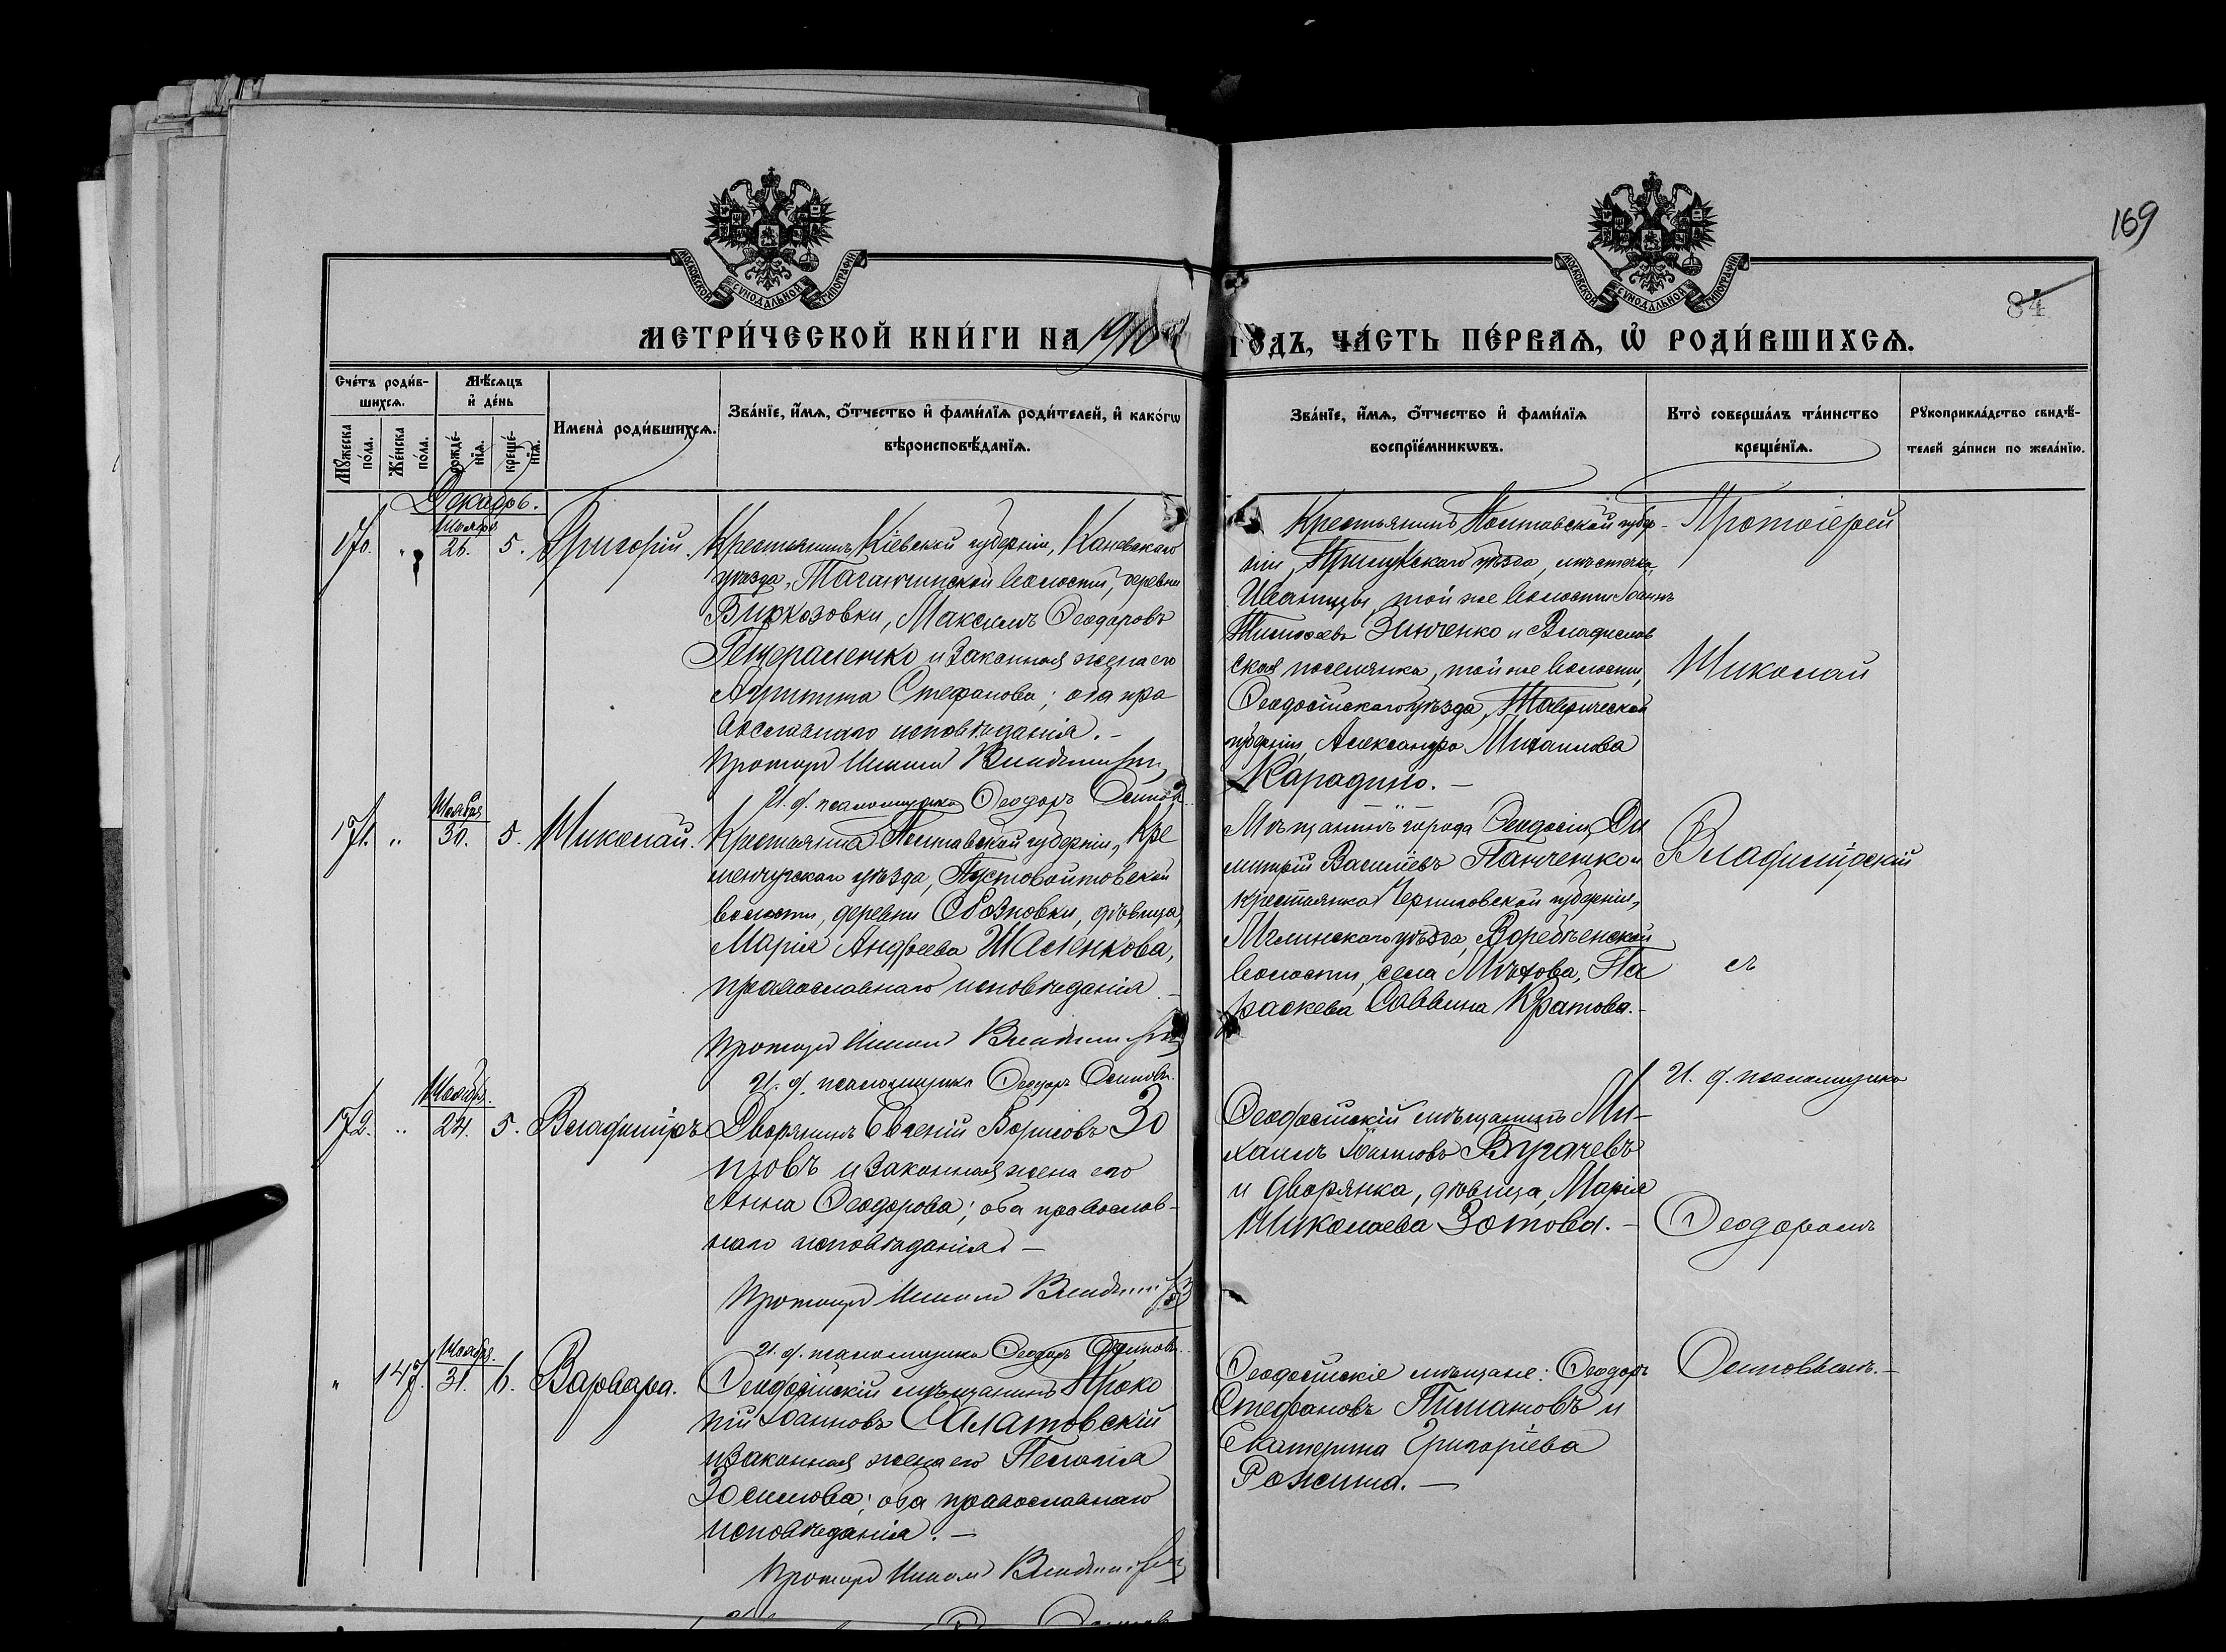 169
84
МОСКОВСКОЙ СУНОДАЛЬНОЙ ТИПОГРАФІИ
МОСКОВСКОЙ СУНОДАЛЬНОЙ ТИПОГРАФІИ
МЕТРИ́ЧЕСКОЙ КНИ́ГИ НА 1910
ГОДЪ, ЧА́СТЬ ПЕ́РВАѦ, Ѡ РОДИ́ВШИХСѦ.
Сче́тъ роди́в-
шихсѧ.
Мꙋжеска
по́ла.
Же́нска
по́ла.
Мѣ́сѧцъ
и҆ де́нь
рожде́-
нїѧ.
креще́-
нїѧ.
Имена̀ роди́вшихсѧ.
Зва́нїе, и҆́мѧ, ѻ҆́тчество и҆ фами́лїѧ роди́телей, и҆ како́гѡ
вѣроисповѣ́данїѧ.
Зва́нїе, и҆́мѧ, ѻ҆́тчество и҆ фами́лїѧ
воспрїе́мникѡвъ.
Кто̀ соверша́лъ та́инство
креще́нїѧ.
Рꙋкоприкла́дство свидѣ́-
телей за́писи по жела́нїю.
Декабрь.
170. " Ноября 26. 5. Григорій.
Крестьянинъ Кіевской губерніи, Каневскаго
уѣзда, Таганчинской волости, деревни
Бирюзовки, Максимъ Ѳеодоровъ
и законная жена его
Агриппина Стефанова; оба пра
вославнаго исповѣданія.-
Протоіерей Николай Владимірскій
И. д. псаломщика Ѳеодоръ Осиповъ
Крестьянинъ Полтавской губер-
ніи, Прилукскаго уѣзда, мѣстечка
Иваницы, той же волости Іоаннъ
Тимоѳеевъ Зинченко и Владислав
ская поселянка, той же волости,
Ѳеодосійскаго уѣзда, Таврической
губерніи, Александра Михаилова
Карадино.-
Протоіерей
Николай
171. " Ноября 30. 5. Николай.
Крестьянка Полтавской губерніи, Кре
менчугскаго уѣзда, Пустовойтовской
волости, деревни Обозновки, дѣвица,
Марія Андреева Шаленкова,
православнаго исповѣданія.-
Протоіерей Николай Владимірскій
И. д. псаломщика Ѳеодоръ Осиповъ
Мѣщанинъ города Ѳеодосіи, Ди
митрій Васильевъ Панченко и
крестьянка Черниговской губерніи,
Мглинскаго уѣзда,
волости, села Мѣхова, Па
раскева Саввина Кратова.-
Владимірскій
съ
172. " Ноября 24. 5. Владиміръ
Дворянинъ Евгеній Борисовъ Зо
товъ и законная жена его
Анна Ѳеодорова; оба православ-
наго исповѣданія.-
Протоіерей Николай Владимірскій
И. д. псаломщика Ѳеодоръ Осиповъ
Ѳеодосійскій мѣщанинъ Ми-
хаилъ Іоанновъ Бугачевъ
и дворянка, дѣвица, Марія
Николаева Зотова.-
И. д. псаломщика
Ѳеодоромъ
" 147. Ноября 31. 6. Варвара.
Ѳеодосійскій мѣщанинъ Проко
пій Іоанновъ Салатовскій
и законная жена его Пелагія
Зосимова; оба православнаго
исповѣданія.-
Протоіерей Николай Владимірскій
Ѳеодосійскіе мѣщане: Ѳеодоръ
Стефановъ Пилатовъ и
Екатерина Григоріева
Рожина.-
Осиповымъ.-